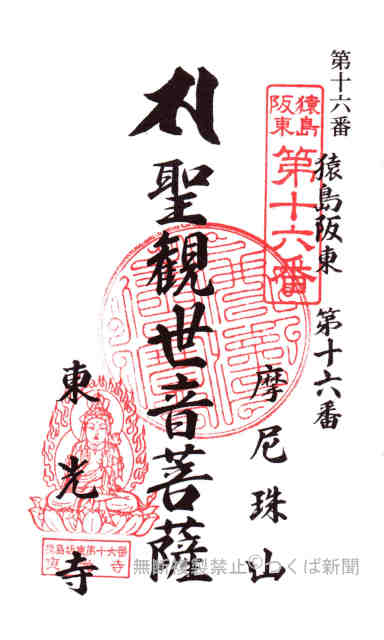 第十六番
猿島阪東 第十六番
猿島
阪東
第十六番
摩尼珠山
聖観世音菩薩
東光寺
猿島坂東第十六番
無断複製禁止©つくば新聞